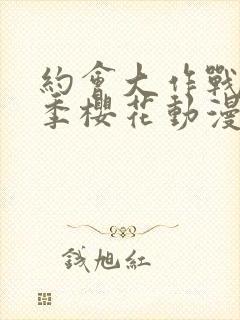 約會大作戰
季櫻花動漫
錢旭紅